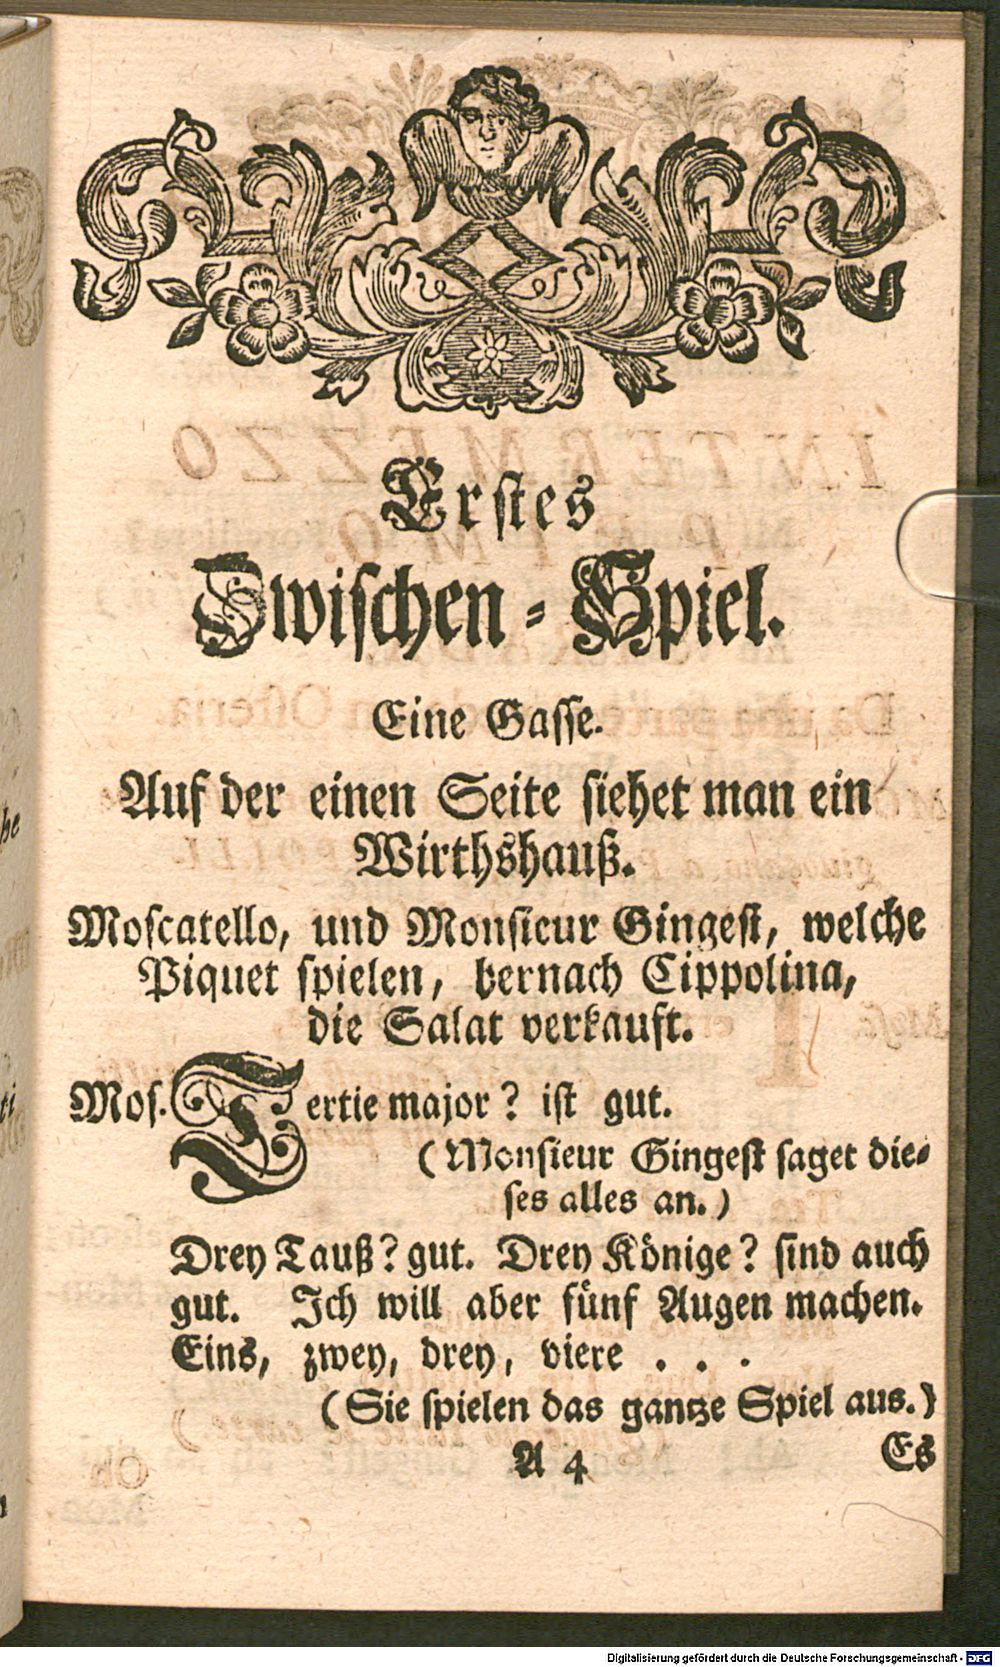 Erstes
Zwischen-Spiel.
Eine Gasse.
Auf der einen Seite siehet man ein
Wirthshauß.
Moscatello, und Monsieur Gingest, welche
Piquet spielen, hernach Cippolina,
die Salat verkauft.
Mos. Tertie major? ist gut.
(Monsieur Gingest saget die-
ses alles an.)
Drey Tauß? gut. Drey Könige? sind auch
gut. Ich will aber fünf Augen machen.
Eins, zwey, drey, viere . . .
(Sie spielen das gantze Spiel aus.)
A 4 Es
Digitalisierung gefördert durch die Deutsche Forschungsgemeinschaft - DFG